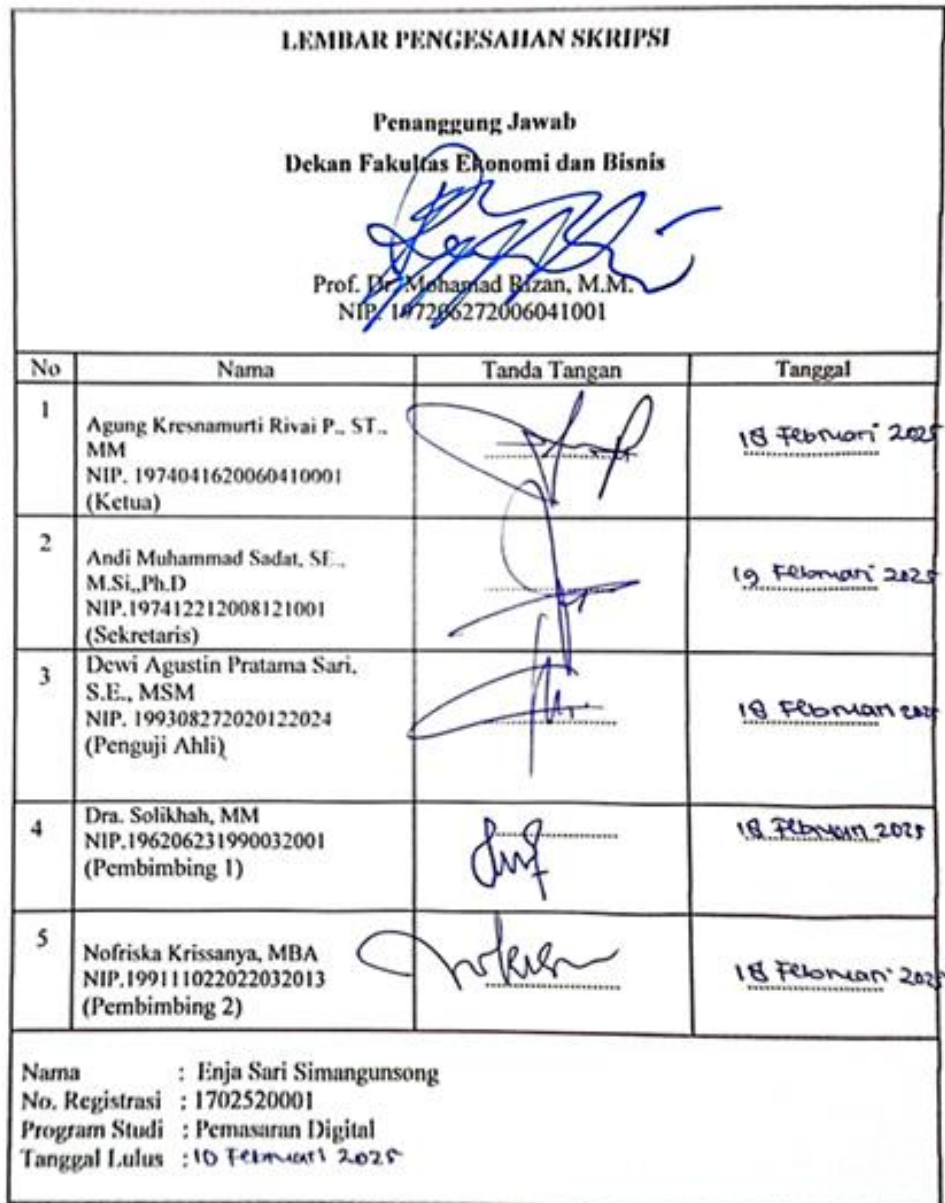 LEMBAR PENGESAHAN SKRIPSI
Penanggung Jawab
Dekan Fakultas Ekonomi dan Bisnis
Prof. Dr. Mohamad Rizan, M.M.
NIP. 197206272006041001
No Nama Tanda Tangan Tanggal
1
Agung Kresnamurti Rivai P., ST.,
MM
NIP. 1974041620060410001
(Ketua)
18 Februari 2025
2
Andi Muhammad Sadat, SE.,
M.Si.,Ph.D
NIP.197412212008121001
(Sekretaris)
19 Februari 2025
3
Dewi Agustin Pratama Sari,
S.E., MSM
NIP. 199308272020122024
(Penguji Ahli)
18 Februari 2025
4
Dra. Solikhah, MM
NIP.196206231990032001
(Pembimbing 1)
18 Februari 2025
5
Nofriska Krissanya, MBA
NIP.199111022022032013
(Pembimbing 2)
18 Februari 2025
Nama : Enja Sari Simangunsong
No. Registrasi : 1702520001
Program Studi : Pemasaran Digital
Tanggal Lulus : 10 Februari 2025